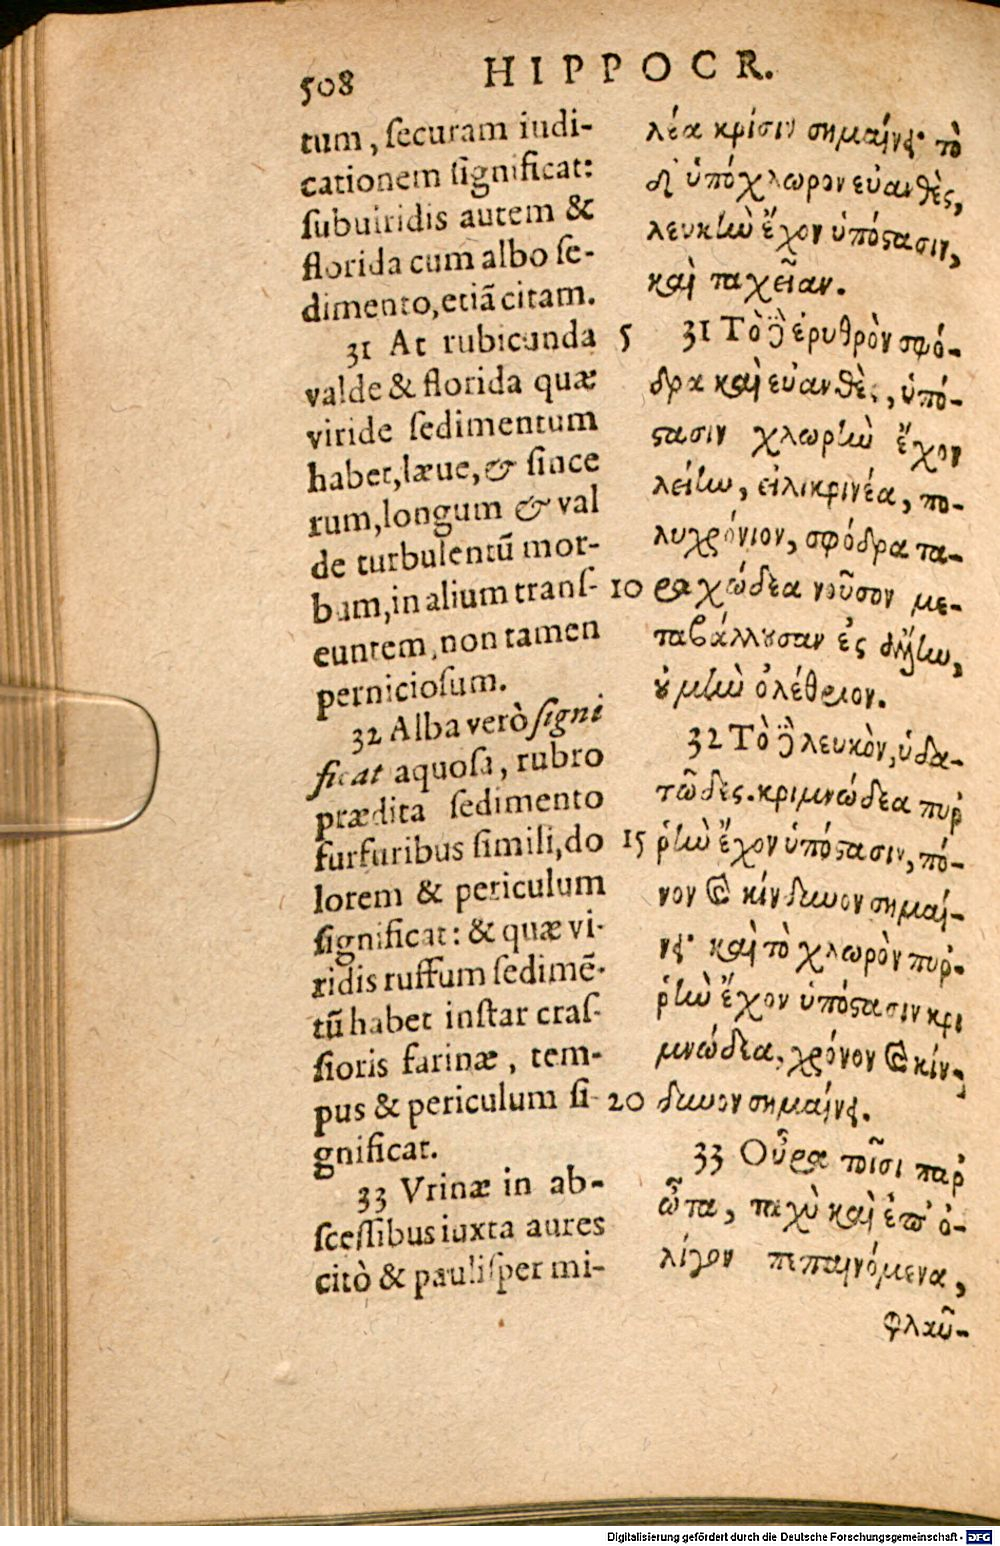 508 HIPPOCR.
tum, ſecuram iudi-
cationem ſignificat:
ſubuiridis autem &
florida cum albo ſe-
dimento, etiā citam.
31 At rubicunda
valde & florida quæ
viride ſedimentum
habet, læue, & ſince
rum, longum & val
de turbulentū mor-
bum, in alium tranſ-
euntem, non tamen
pernicioſum.
32 Alba verò ſigni
ficat aquoſa, rubro
prædita ſedimento
furfuribus ſimili, do
lorem & periculum
ſignificat: & quæ vi-
ridis ruffum ſedimē-
tū habet inſtar craſ-
ſioris farinæ, tem-
pus & periculum ſi-
gnificat.
33 Vrinæ in ab-
ſceſſibus iuxta aures
citò & pauliſper mi-
λέα κρίσιν σημαίνει· τὸ
δ' ὑπόχλωρον εὐανθὲς,
λευκὴν ἔχον ὑπόστασιν,
καὶ ταχεῖαν.
5 31 Τὸ δὲ ἐρυθρὸν σφό-
δρα καὶ εὐανθὲς, ὑπό-
στασιν χλωρὴν ἔχον
λείην, εἰλικρινέα, πο-
λυχρόνιον, σφόδρα τα-
10 ραχώδεα νοῦσον με-
ταβάλλουσαν ἐς ἄλλην,
οὐ μὴν ὀλέθριον.
32 Τὸ δὲ λευκὸν, ὑδα-
τῶδες. κριμνώδεα πυρ
15 ῥὴν ἔχον ὑπόστασιν, πό-
νον καὶ κίνδυνον σημαί-
νει· καὶ τὸ χλωρὸν πυρ-
ῥὴν ἔχον ὑπόστασιν κρι
μνώδεα, χρόνον καὶ κίν-
20 δυνον σημαίνει.
33 Οὖρα τοῖσι παρ'
ὦτα, ταχὺ καὶ ἐπ' ὀ-
λίγον πεπαινόμενα,
φλαῦ-
Digitalisierung gefördert durch die Deutsche Forschungsgemeinschaft - DFG